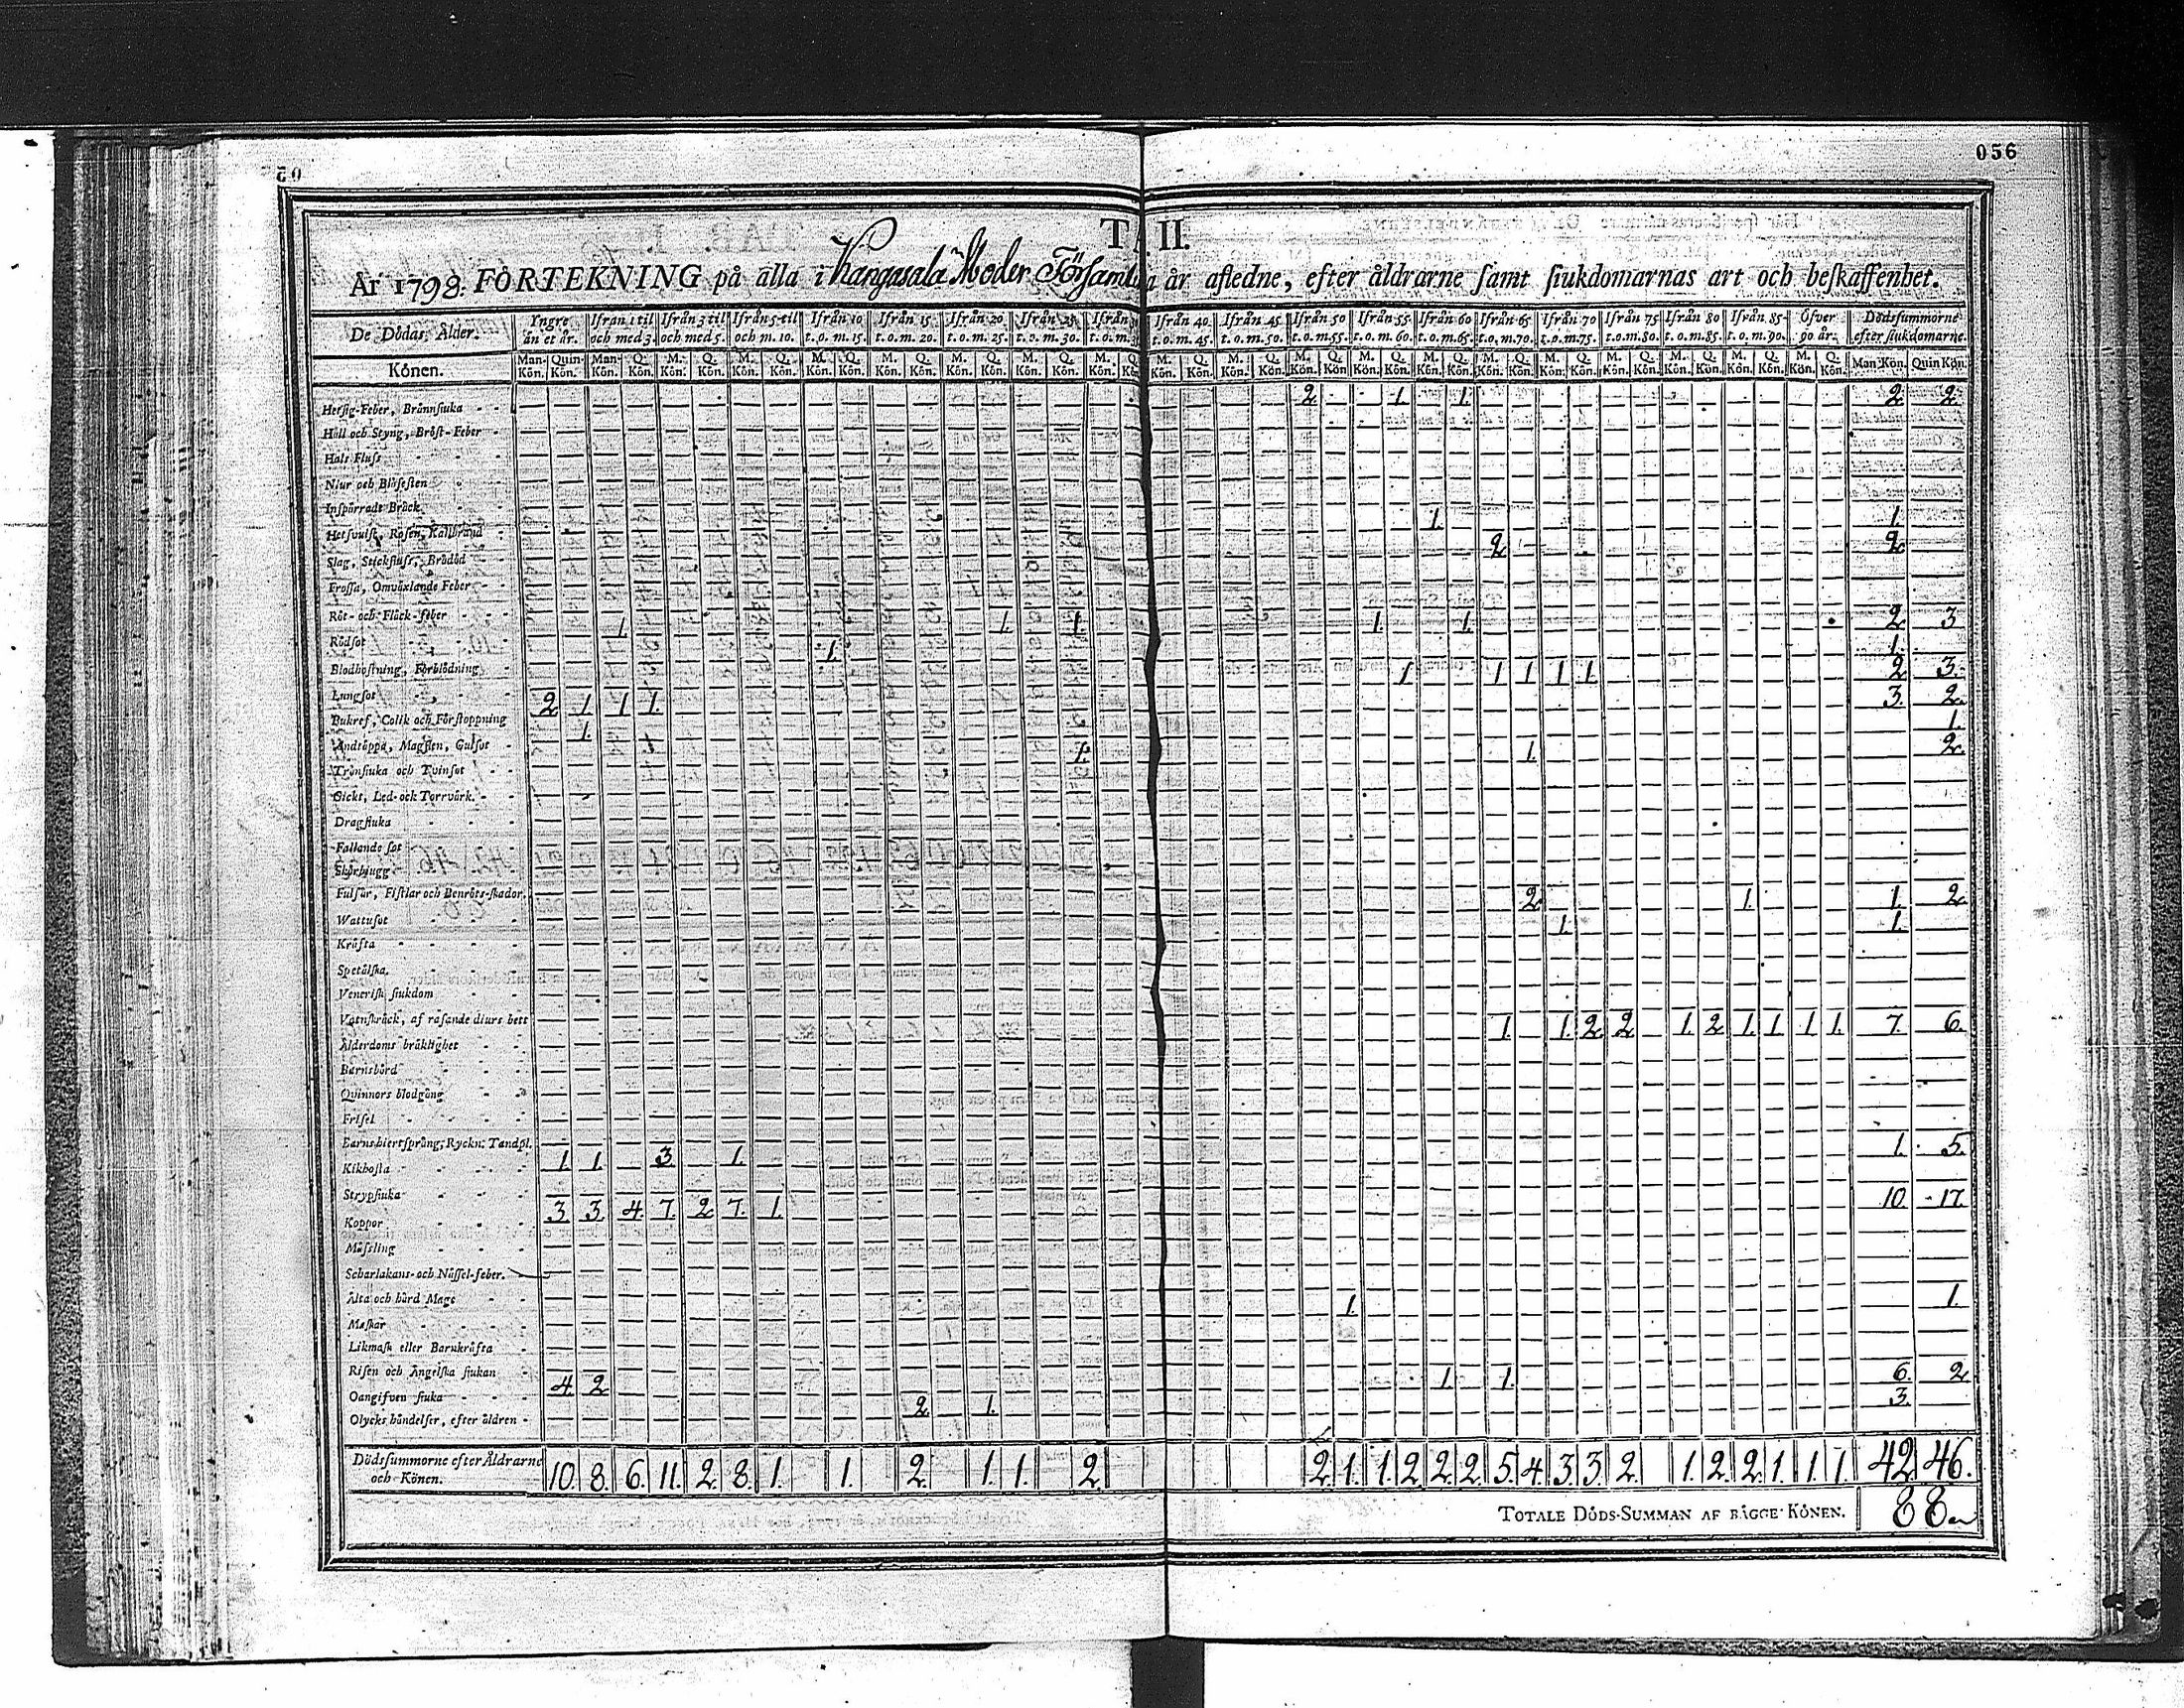 056
50
TA II.
År 1798. FÖRTEKNING på alla i Kangasala Moder Församl a år afledne, efter åldrarne samt siukdomarnas art och beskaffenhet.
De Dödas Ålder. Yngre än et år. Ifrån 1 til och med 3. Ifrån 3 til och med 5. Ifrån 5 til och m. 10. Ifrån 10 t. o. m. 15. Ifrån 15 t. o. m. 20. Ifrån 20 t. o. m. 25. Ifrån 25 t. o. m. 30. Ifrån t. o. m. Ifrån 40 t. o. m. 45. Ifrån 45 t. o. m. 50. Ifrån 50 t. o. m. 55. Ifrån 55 t. o. m. 60. Ifrån 60 t. o. m. 65. Ifrån 65 t. o. m. 70. Ifrån 70 t. o. m. 75. Ifrån 75 t. o. m. 80. Ifrån 80 t. o. m. 85. Ifrån 85 t. o. m. 90. Öfver 90 år. Dödssummorne efter siukdomarne.
Könen. Man-Kön. Quin-Kön. Man-Kön. Q. Kön. M. Kön. Q. Kön. M. Kön. Q. Kön. M. Kön. Q. Kön. M. Kön. Q. Kön. M. Kön. Q. Kön. M. Kön. Q. Kön. M. Kön. Q. Kön. M. Kön. Q. Kön. M. Kön. Q. Kön. M. Kön. Q. Kön. M. Kön. Q. Kön. M. Kön. Q. Kön. M. Kön. Q. Kön. M. Kön. Q. Kön. M. Kön. Q. Kön. M. Kön. Q. Kön. M. Kön. Q. Kön. M. Kön. Q. Kön. Man Kön. Quin Kön.
Hetsig-Feber, Brännsiuka 2 1. 1. 2 2
Håll och Styng, Bröst-Feber
Hals Fluss
Niur och Blåsesten
Inspärradt Bråck
Hetsvulst, Rosen, Kallbrand 1. 1.
Slag, Stickfluss, Brådöd 2 2
Frossa, Omväxlande Feber
Röt- och Fläck-feber
Rödsot 1. 1. 1. 1. 1. 2 3
Blodhostning, Förblödning 1. 1.
Lungsot 1 1 1 1 1 2 3.
Bukref, Colik och Förstoppning 2 1 1 1. 3. 2.
Andtäppa, Magsten, Gulsot 1. 1.
Trånsiuka och Tvinsot 1. 1. 2.
Gickt, Led- och Torrvärk.
Dragsiuka
Fallande sot
Skörbiugg
Fulsår, Fistlar och Benröts-skador.
Wattusot 2 1. 1. 2
Kräfta 1. 1.
Spetälska.
Venerisk siukdom
Vatnskräck, af rasande diurs bett
Ålderdoms bräklighet 1. 1. 2 2 1. 2 1. 1. 1. 1. 7. 6.
Barnsbörd
Qvinnors blodgång
Frisel
Barnshiertsprång, Ryckn. Tandpl.
Kikhosta 1. 1. 3 1. 1. 5.
Strypsiuka
Koppor 3 3 4 7. 2 7. 1. 10. 17.
Mässling
Scharlakans- och Nässel-feber.
Älta och hård Mage
Maskar 1. 1.
Likmask eller Barnkräfta
Risen och Ängelska siukan
Oangifven siuka 4 2 1. 1. 6. 2
Olycks händelser, efter åldren 2 1. 3.
Dödssummorne efter Åldrarne och Könen. 10. 8. 6. 11. 2. 8. 1. 1. 2. 1. 1. 2. 2. 1. 1. 2. 2. 2. 5. 4. 3. 3. 2. 1. 2. 2. 1. 1. 1. 42 46.
TOTALE DÖDS-SUMMAN AF BÄGGE KÖNEN. 88